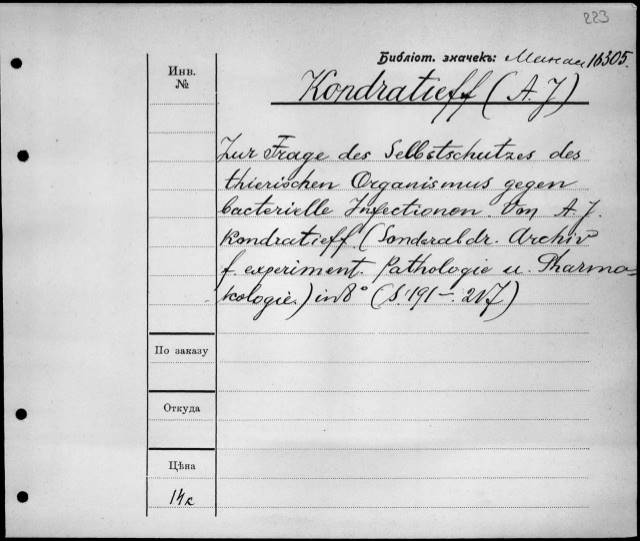 223
Библіот. значекъ: 16305.
Инв.
№
Kondratieff (A. J)
Zur Frage des Selbstschutzes des
thierischen Organismus gegen
bacterielle Infectionon. Von A. J.
Kondratieff. (Sonderabdr. Archiv
f. experiment. Pathologie u. Pharma-
kologie.) in 8° (S. 191-. 217)
По заказу
Откуда
Цѣна
14к